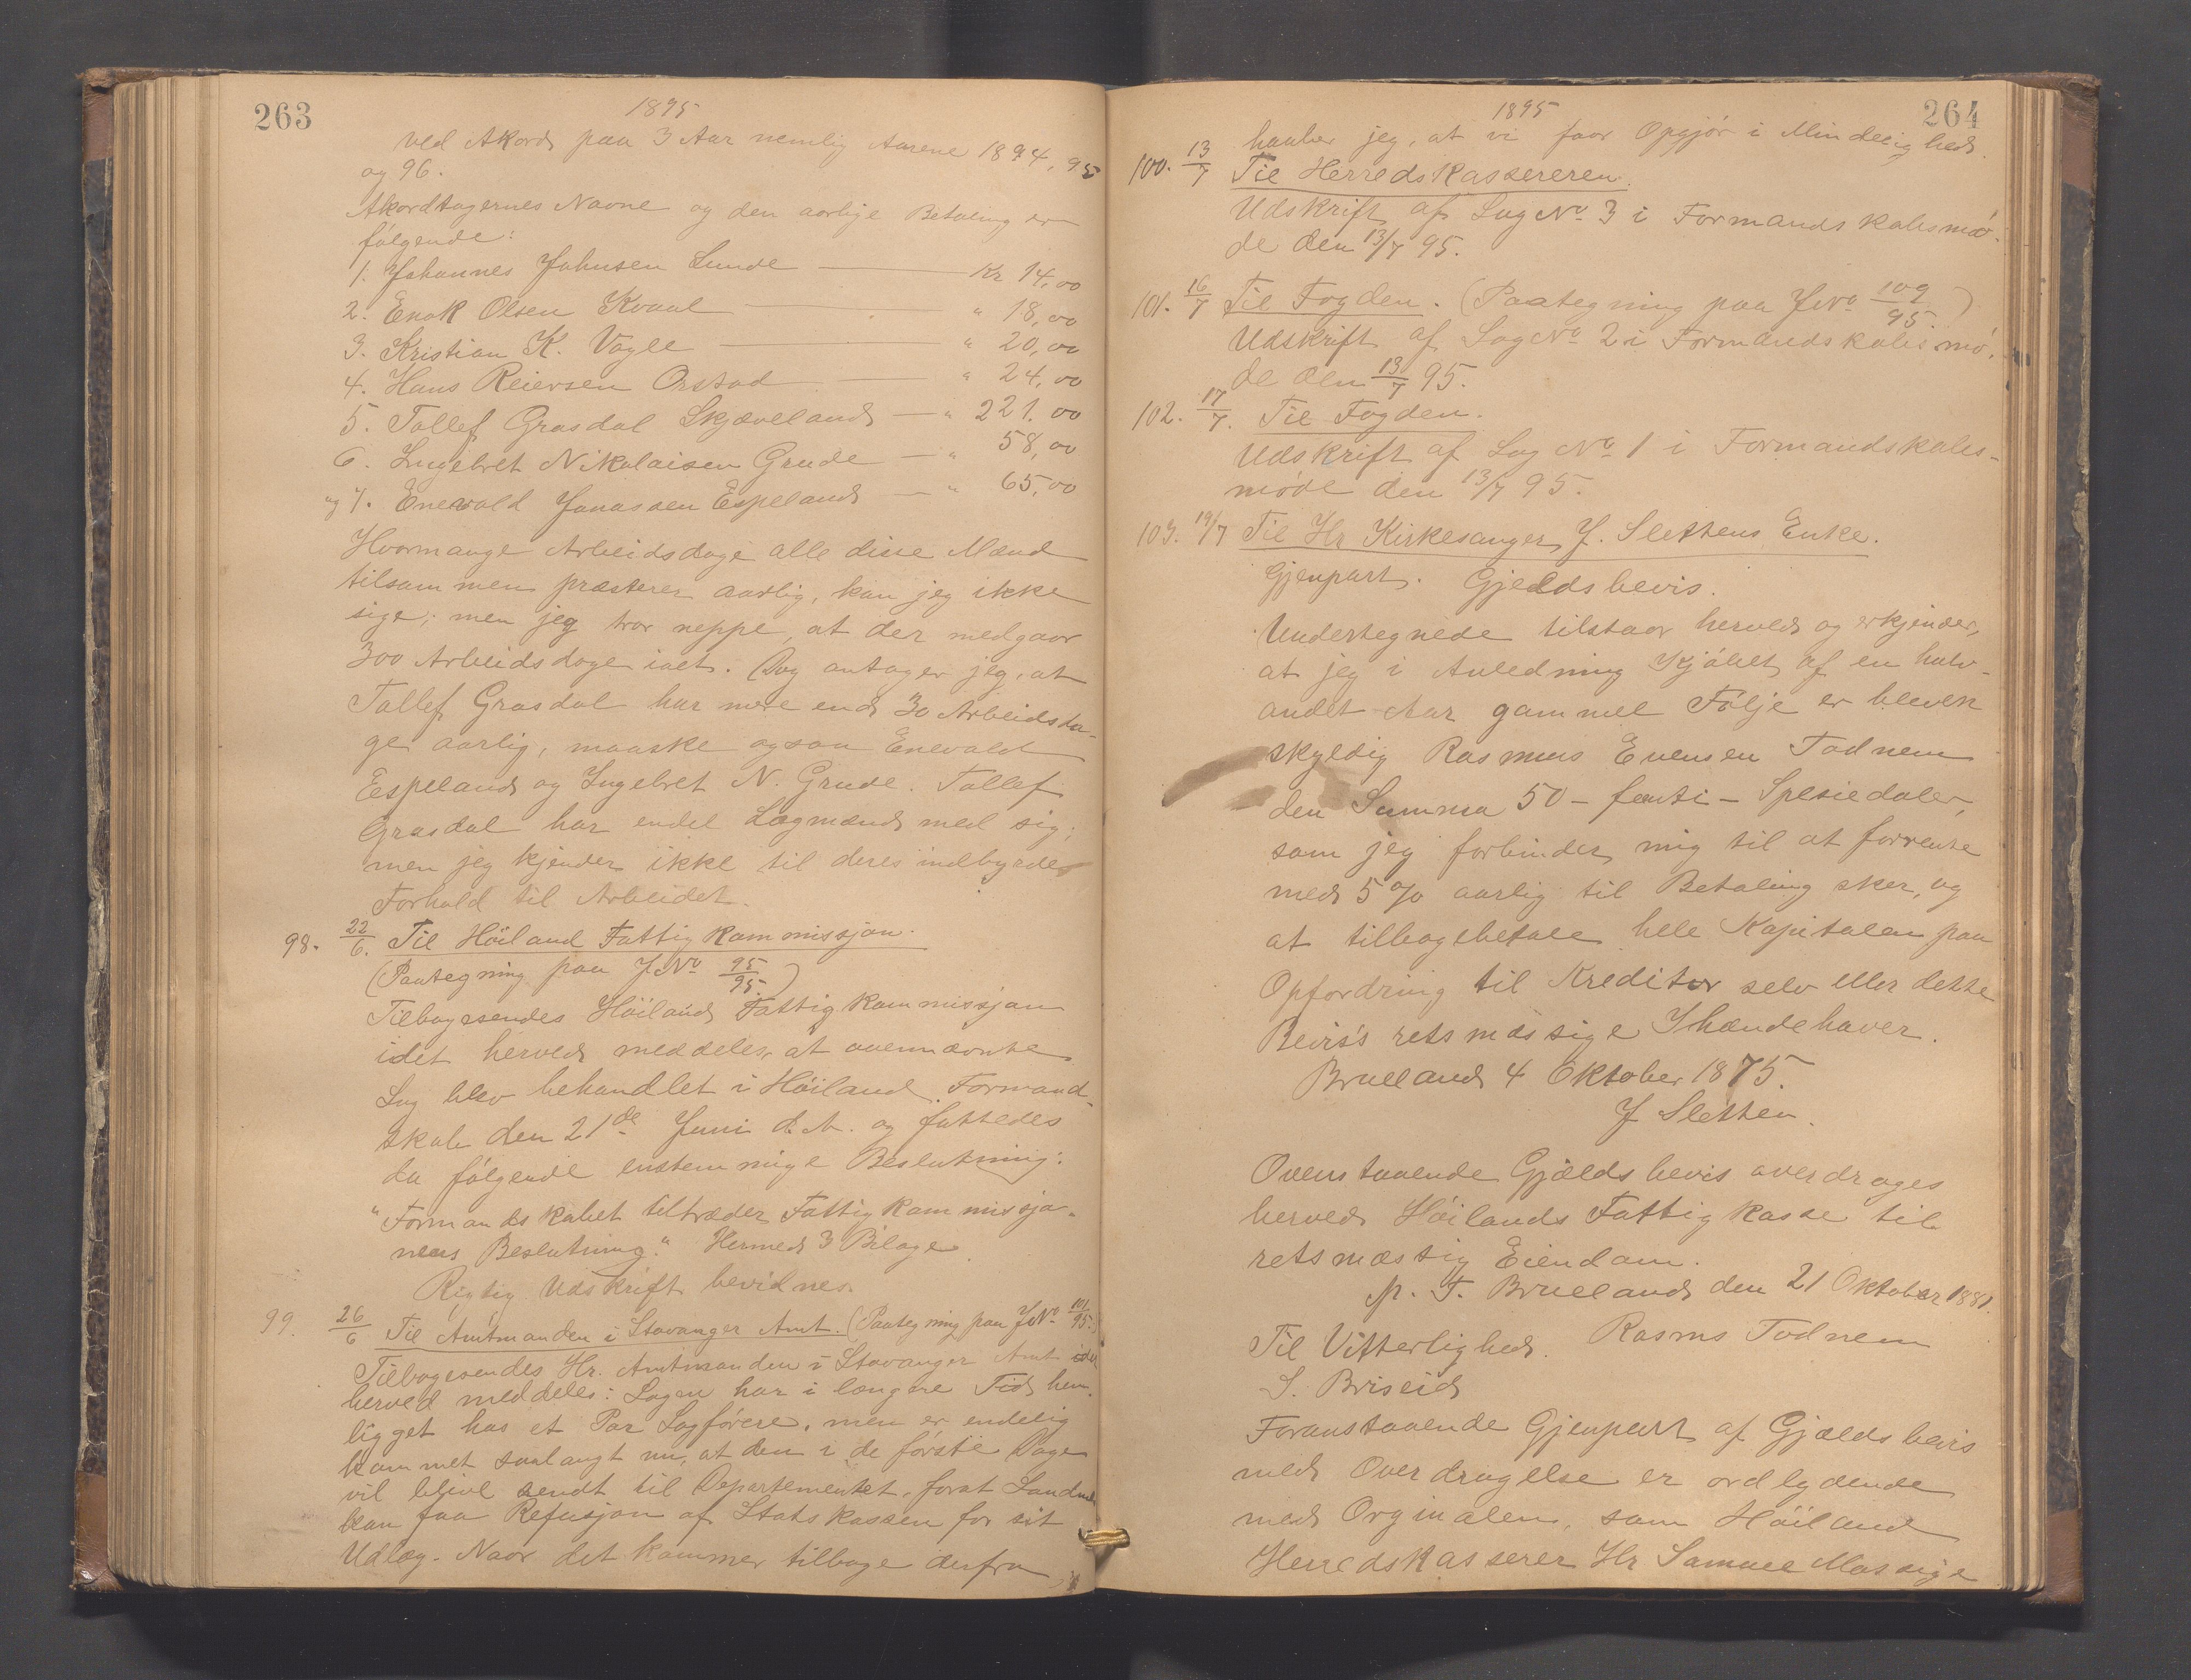 263
1895
ved Akord paa 3 Aar nemlig Aarene 1894, 95
og 96.
Akordtagernes Navne og den aarlige Betaling er
følgende:
1. Johannes Johnsen Lunde — Kr 14,00
2. Enok Olsen Kvaal — " 18,00
3. Kristian K. Vagle — " 20,00
4. Hans Reiersen Orstad — " 24,00
5. Tollef Grasdal Skjæveland — " 221.00
6. Ingebret Nikolaisen Grude — " 58,00
og 7. Enevald Jonassen Espeland — " 65,00
Hvormange Arbeidsdage alle disse Mænd
tilsammen præsterer aarlig, kan jeg ikke
sige; men jeg tror neppe, at der medgaar
300 Arbeidsdage ialt. Dog antager jeg, at
Tollef Grasdal har mere end 30 Arbeidsda-
ge aarlig, maaske ogsaa Enevald
Espeland og Ingebret N. Grude. Tollef
Grasdal har endel Lagmænd med sig;
men jeg kjender ikke til deres indbyrdes
Forhold til Arbeidet.
98. 22/6. Til Höiland Fattigkommissjon.
(Paategning paa J.No 95/95.)
Tilbagesendes Höiland Fattigkommissjon
idet herved meddeles, at ovennævnte
Sag blev behandlet i Höiland Formand-
skab den 21de Juni d.A. og fattedes
da følgende enstemmige Beslutning:
"Formandskabet tiltræder Fattigkommissjo-
nens Beslutning." Hermed 3 Bilage.
Rigtig Udskrift bevidnes.
99. 26/6 Til Amtmanden i Stavanger Amt. (Paategning paa J.No 101/95.)
Tilbagesendes Hr. Amtmanden i Stavanger Amt idet
herved meddeles: Sagen har i længere Tid hen-
ligget hos et Par Sagførere, men er endelig
kommet saalangt nu, at den i de første Dage
vil blive sendt til Departementet, forat
kan faa Refusjon af Statskassen for sit
Udlæg. Naar det kommer tilbage derfra
264
1895
haaber jeg, at vi faar Opgjör i Mindelighed.
100. 13/7 Til Herredskassereren.
Udskrift af Sag No 3 i Formandskabsmö-
de den 13/7 95.
101. 16/7 Til Fogden. (Paategning paa J.No 109/95.)
Udskrift af Sag No 2 i Formandskabsmö-
de den 13/7 95.
102. 17/7. Til Fogden.
Udskrift af Sag No 1 i Formandskabs-
möde den 13/7 95.
103. 19/7 Til Hr Kirkesanger J. Slettens Enke.
Gjenpart. Gjeldsbevis.
Undertegnede tilstaar herved og erkjender,
at jeg i Anledning Kjöbet af en halv-
andet Aar gammel Følje er bleven
skyldig Rasmus Evensen Todnem
den Summa 50 – femti – Spesiedaler,
som jeg forbinder mig til at forrente
med 5% aarlig til Betaling sker, og
at tilbagebetale hele Kapitalen paa
Opfordring til Kreditor selv eller dette
Bevis's retsmæssige Ihændehaver.
Brueland 4 Oktober 1875.
J Sletten.
Ovenstaaende Gjældsbevis overdrages
herved Höilands Fattigkasse til
retsmæssig Eiendom.
p. t. Brueland den 21 Oktober 1881.
Til Vitterlighed. Rasms Todnem
S. Briseid
Foranstaaende Gjenpart af Gjældsbevis
med Overdragelse er ordlydende
med Orginalen, som Höiland
Herredskasserer Hr Samuel Mossige